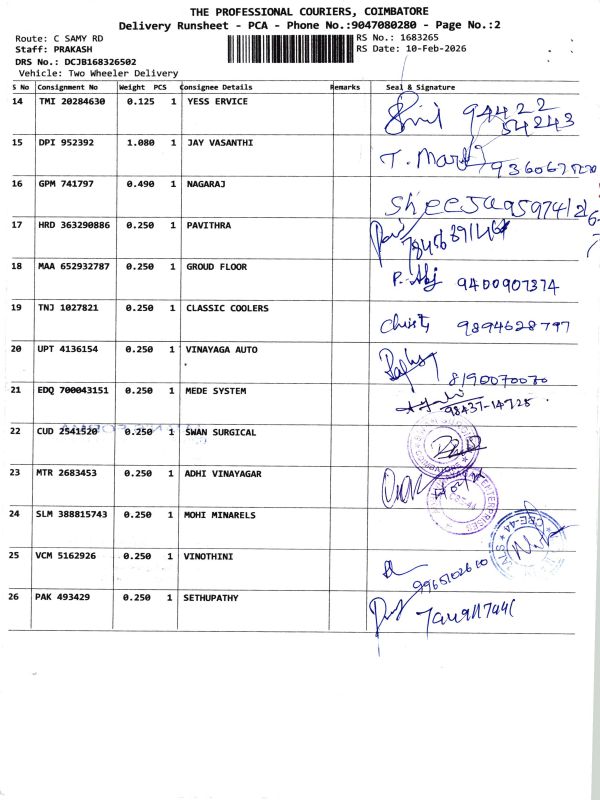 THE PROFESSIONAL COURIERS, COIMBATORE
Delivery Runsheet - PCA - Phone No.:9047080280 - Page No.:2
Route: C SAMY RD RS No.: 1683265
Staff: PRAKASH RS Date: 10-Feb-2026
DRS No.: DCJB168326502
Vehicle: Two Wheeler Delivery
S No Consignment No Weight PCS Consignee Details Remarks Seal & Signature
14 TMI 20284630 0.125 1 YESS ERVICE 94422
54243
15 DPI 952392 1.080 1 JAY VASANTHI
T.
16 GPM 741797 0.490 1 NAGARAJ
Sheeja
17 HRD 363290886 0.250 1 PAVITHRA
18 MAA 652932787 0.250 1 GROUD FLOOR
9400907374
19 TNJ 1027821 0.250 1 CLASSIC COOLERS
9894628797
20 UPT 4136154 0.250 1 VINAYAGA AUTO
8190070070
21 EDQ 700043151 0.250 1 MEDE SYSTEM
98437-14728
22 CUD 2541520 0.250 1 SWAN SURGICAL
COIMBATORE
23 MTR 2683453 0.250 1 ADHI VINAYAGAR
ENTERPRISES
24 SLM 388815743 0.250 1 MOHI MINARELS
CBE-44
25 VCM 5162926 0.250 1 VINOTHINI
9965102610
26 PAK 493429 0.250 1 SETHUPATHY